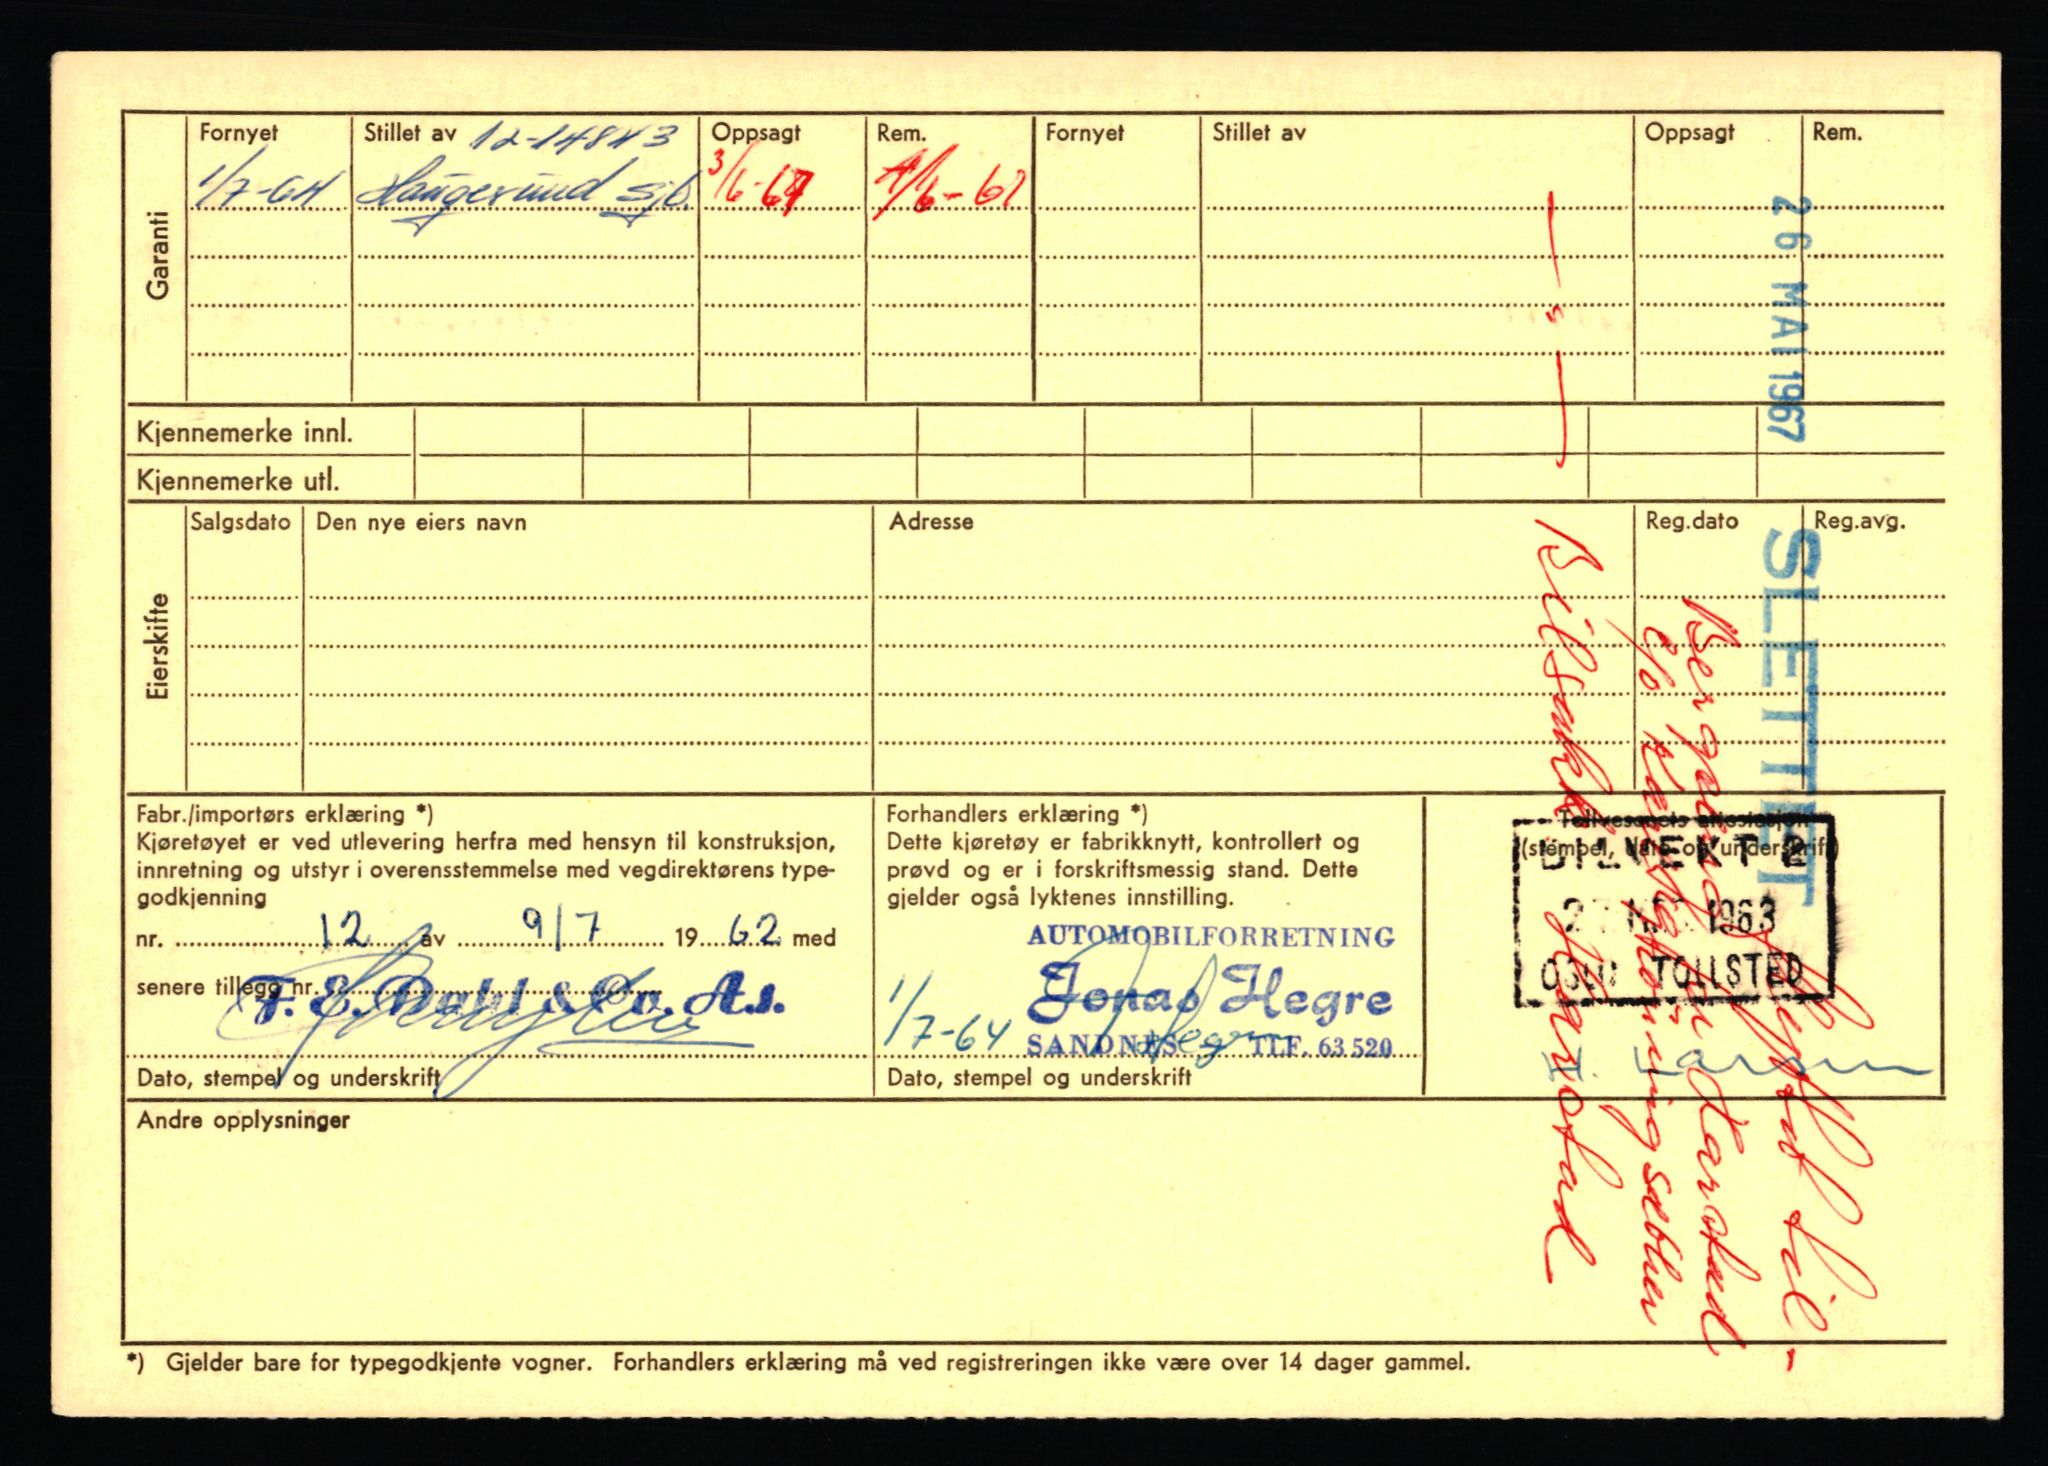 Garanti
Fornyet Stillet av 12-14843 Oppsagt Rem. Fornyet Stillet av Oppsagt Rem.
1/7-64 Haugerund sjb. 3/6-67 1/6-67
26 MAI 1967
Kjennemerke innl.
Kjennemerke utl.
Eierskifte
Salgsdato Den nye eiers navn Adresse Reg.dato Reg.avg.
SLETTET
Fabr./importørs erklæring *)
Kjøretøyet er ved utlevering herfra med hensyn til konstruksjon,
innretning og utstyr i overensstemmelse med vegdirektørens type-
godkjenning
nr. 12 av 9/7 1962 med
senere tillegg nr.
F. E. Dahl & Co. A.s.
Dato, stempel og underskrift
Forhandlers erklæring *)
Dette kjøretøy er fabrikknytt, kontrollert og
prøvd og er i forskriftsmessig stand. Dette
gjelder også lyktenes innstilling.
AUTOMOBILFORRETNING
Jonas Hegre
1/7-64
SANDNES TLF. 63 520
Dato, stempel og underskrift
Tollvesenets attestasjon
(stempel, dato og underskrift)
BILVEKT 2
1963
OSLO TOLLSTED
H. Larsen
til-
Harstad
c/o
Harstad
Andre opplysninger
*) Gjelder bare for typegodkjente vogner. Forhandlers erklæring må ved registreringen ikke være over 14 dager gammel.